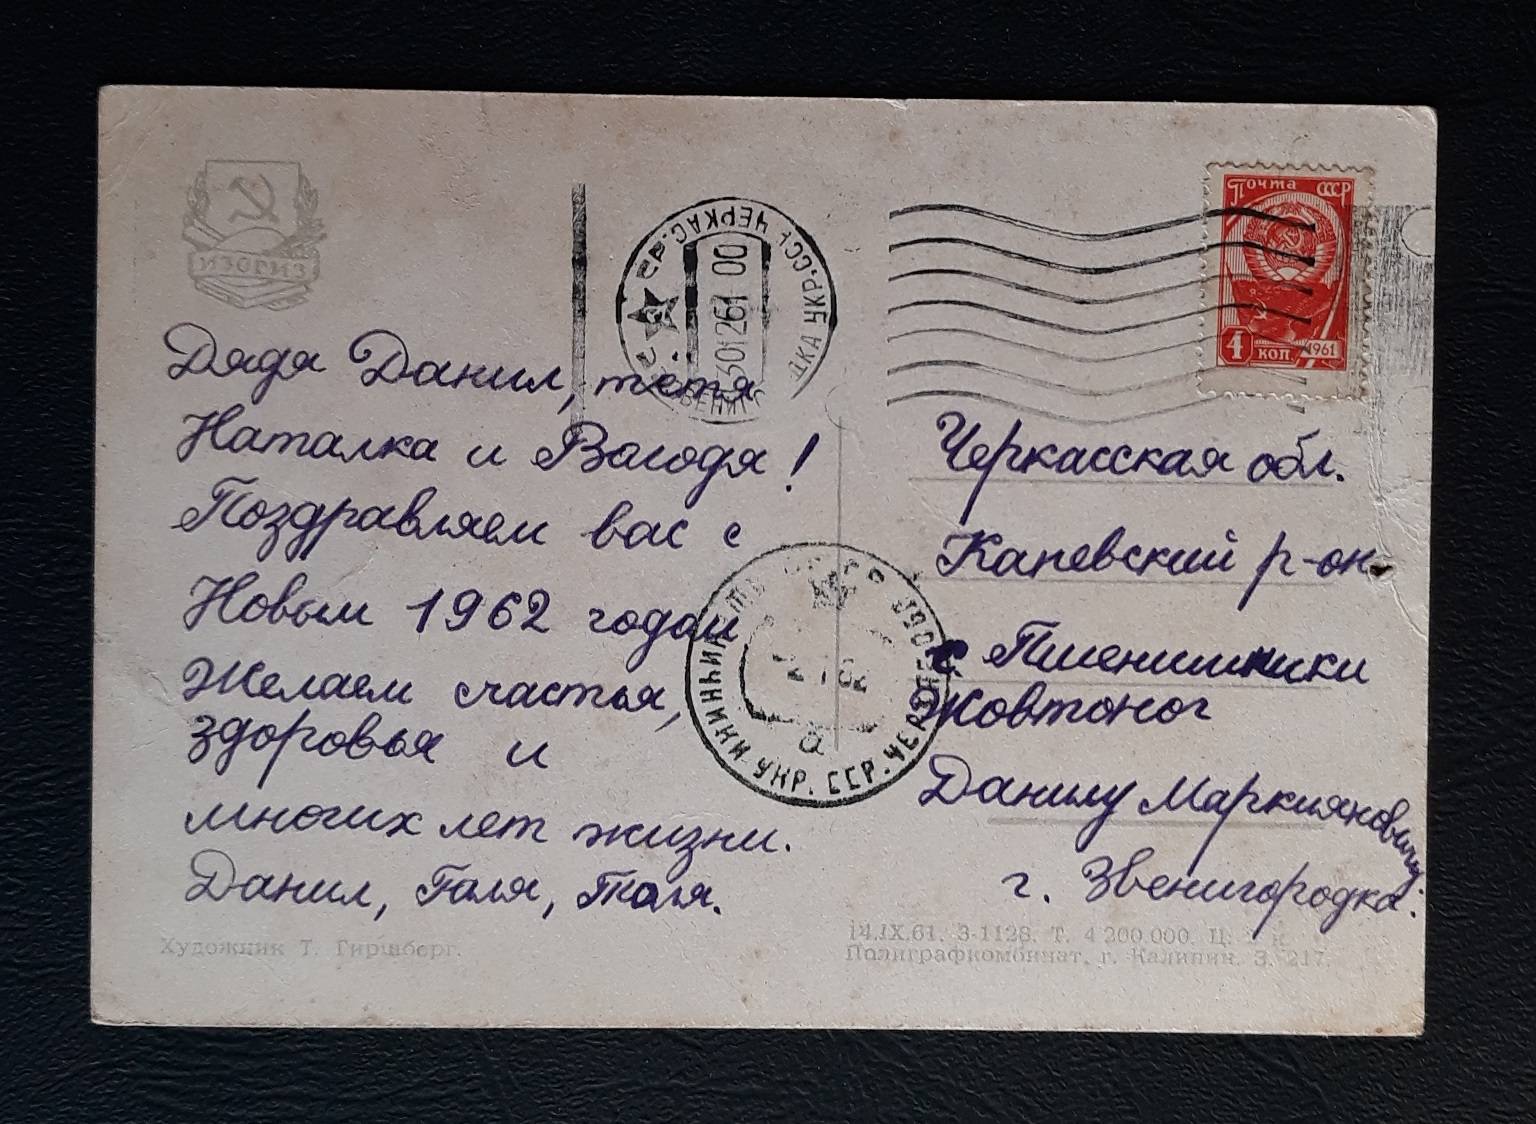 ИЗОГИЗ
Дядя Данил, тетя
Наталка и Володя!
Поздравляем вас с
Новым 1962 годом
Желаем счастья,
здоровья и
многих лет жизни.
Данил, Галя, Толя.
Художник Т. Гиршберг.
УКР.ССР ЧЕРКАС.
301261 00
Почта СССР
4 коп. 1961
ПШЕНИЧНИКИ УКР. ССР
а
Черкасская обл.
Каневский р-он
с Пшенишники
Жовтоног
Данилу Маркияновичу
г. Звенигородка.
14.IX.61. З-1128. Т. 4 200.000. Ц.
Полиграфкомбинат, г. Калинин. З. 217.